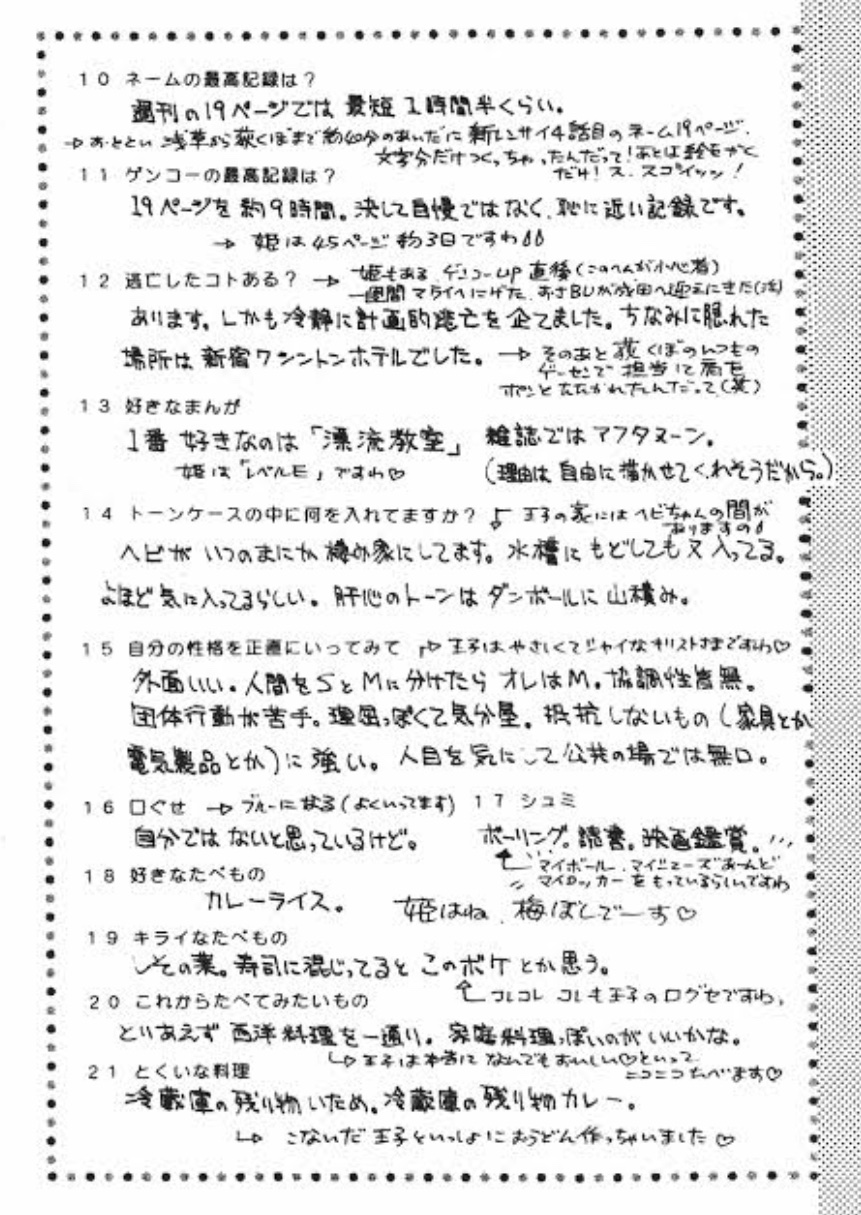 10 ネームの最高記録は?
週刊の19ページでは 最短 1時間半くらい。
→おととい 浅草から荻くぼまで約40分のあいだに 新レンサイ4話目のネーム19ページ、
文字分だけつくっちゃったんだって!あとは絵をかく
だけ!ス、スゴイッッ!
11 ゲンコーの最高記録は?
19ページを約9時間。決して自慢ではなく、恥に近い記録です。
→ 姫は45ページ約3日ですわ
12 逃亡したコトある? → 姫もある ゲンコーUP直後(このへんが小心者)
一週間 マライへにげた、おさBUが成田へ迎えにきた(泣)
あります。しかも冷静に計画的逃亡を企てました。ちなみに隠れた
場所は新宿ワシントンホテルでした。→ そのあと荻くぼのいつもの
ゲーセンで担当に肩を
ポンとたたかれたんだって(笑)
13 好きなまんが
1番好きなのは「漂流教室」 雑誌ではアフタヌーン。
姫は「レベルE」ですわ♡ (理由は自由に描かせてくれそうだから。)
14 トーンケースの中に何を入れてますか? 王子の家にはヘビちゃんの間が
ありますの
ヘビがいつのまにか棲み家にしてます。水槽にもどしても又入ってる。
よほど気に入ってるらしい。肝心のトーンはダンボールに山積み。
15 自分の性格を正直にいってみて → 王子はやさしくてシャイなキリストさまですわ♡
外面いい。人間をSとMに分けたらオレはM。協調性皆無。
団体行動が苦手。理屈っぽくて気分屋。抵抗しないもの(家具とか
電気製品とか)に強い。人目を気にして公共の場では無口。
16 口ぐせ → ブルーになる(よくいってます) 17 シュミ
自分ではないと思っているけど。 ボーリング。読書。映画鑑賞。
マイボール、マイシューズあーんど
マイロッカーをもっているらしいですわ
18 好きなたべもの
カレーライス。 姫はね、梅ぼしでーす♡
19 キライなたべもの
しその葉。寿司に混じってるとこのボケとか思う。
20 これからたべてみたいもの コレコレ コレも王子の口グセですわ、
とりあえず西洋料理を一通り。家庭料理っぽいのがいいかな。
21 とくいな料理 → 王子は本当になんでもおいしい♡といって
ニコニコたべます♡
冷蔵庫の残り物いため。冷蔵庫の残り物カレー。
→ こないだ王子といっしょにおうどん作っちゃいました♡